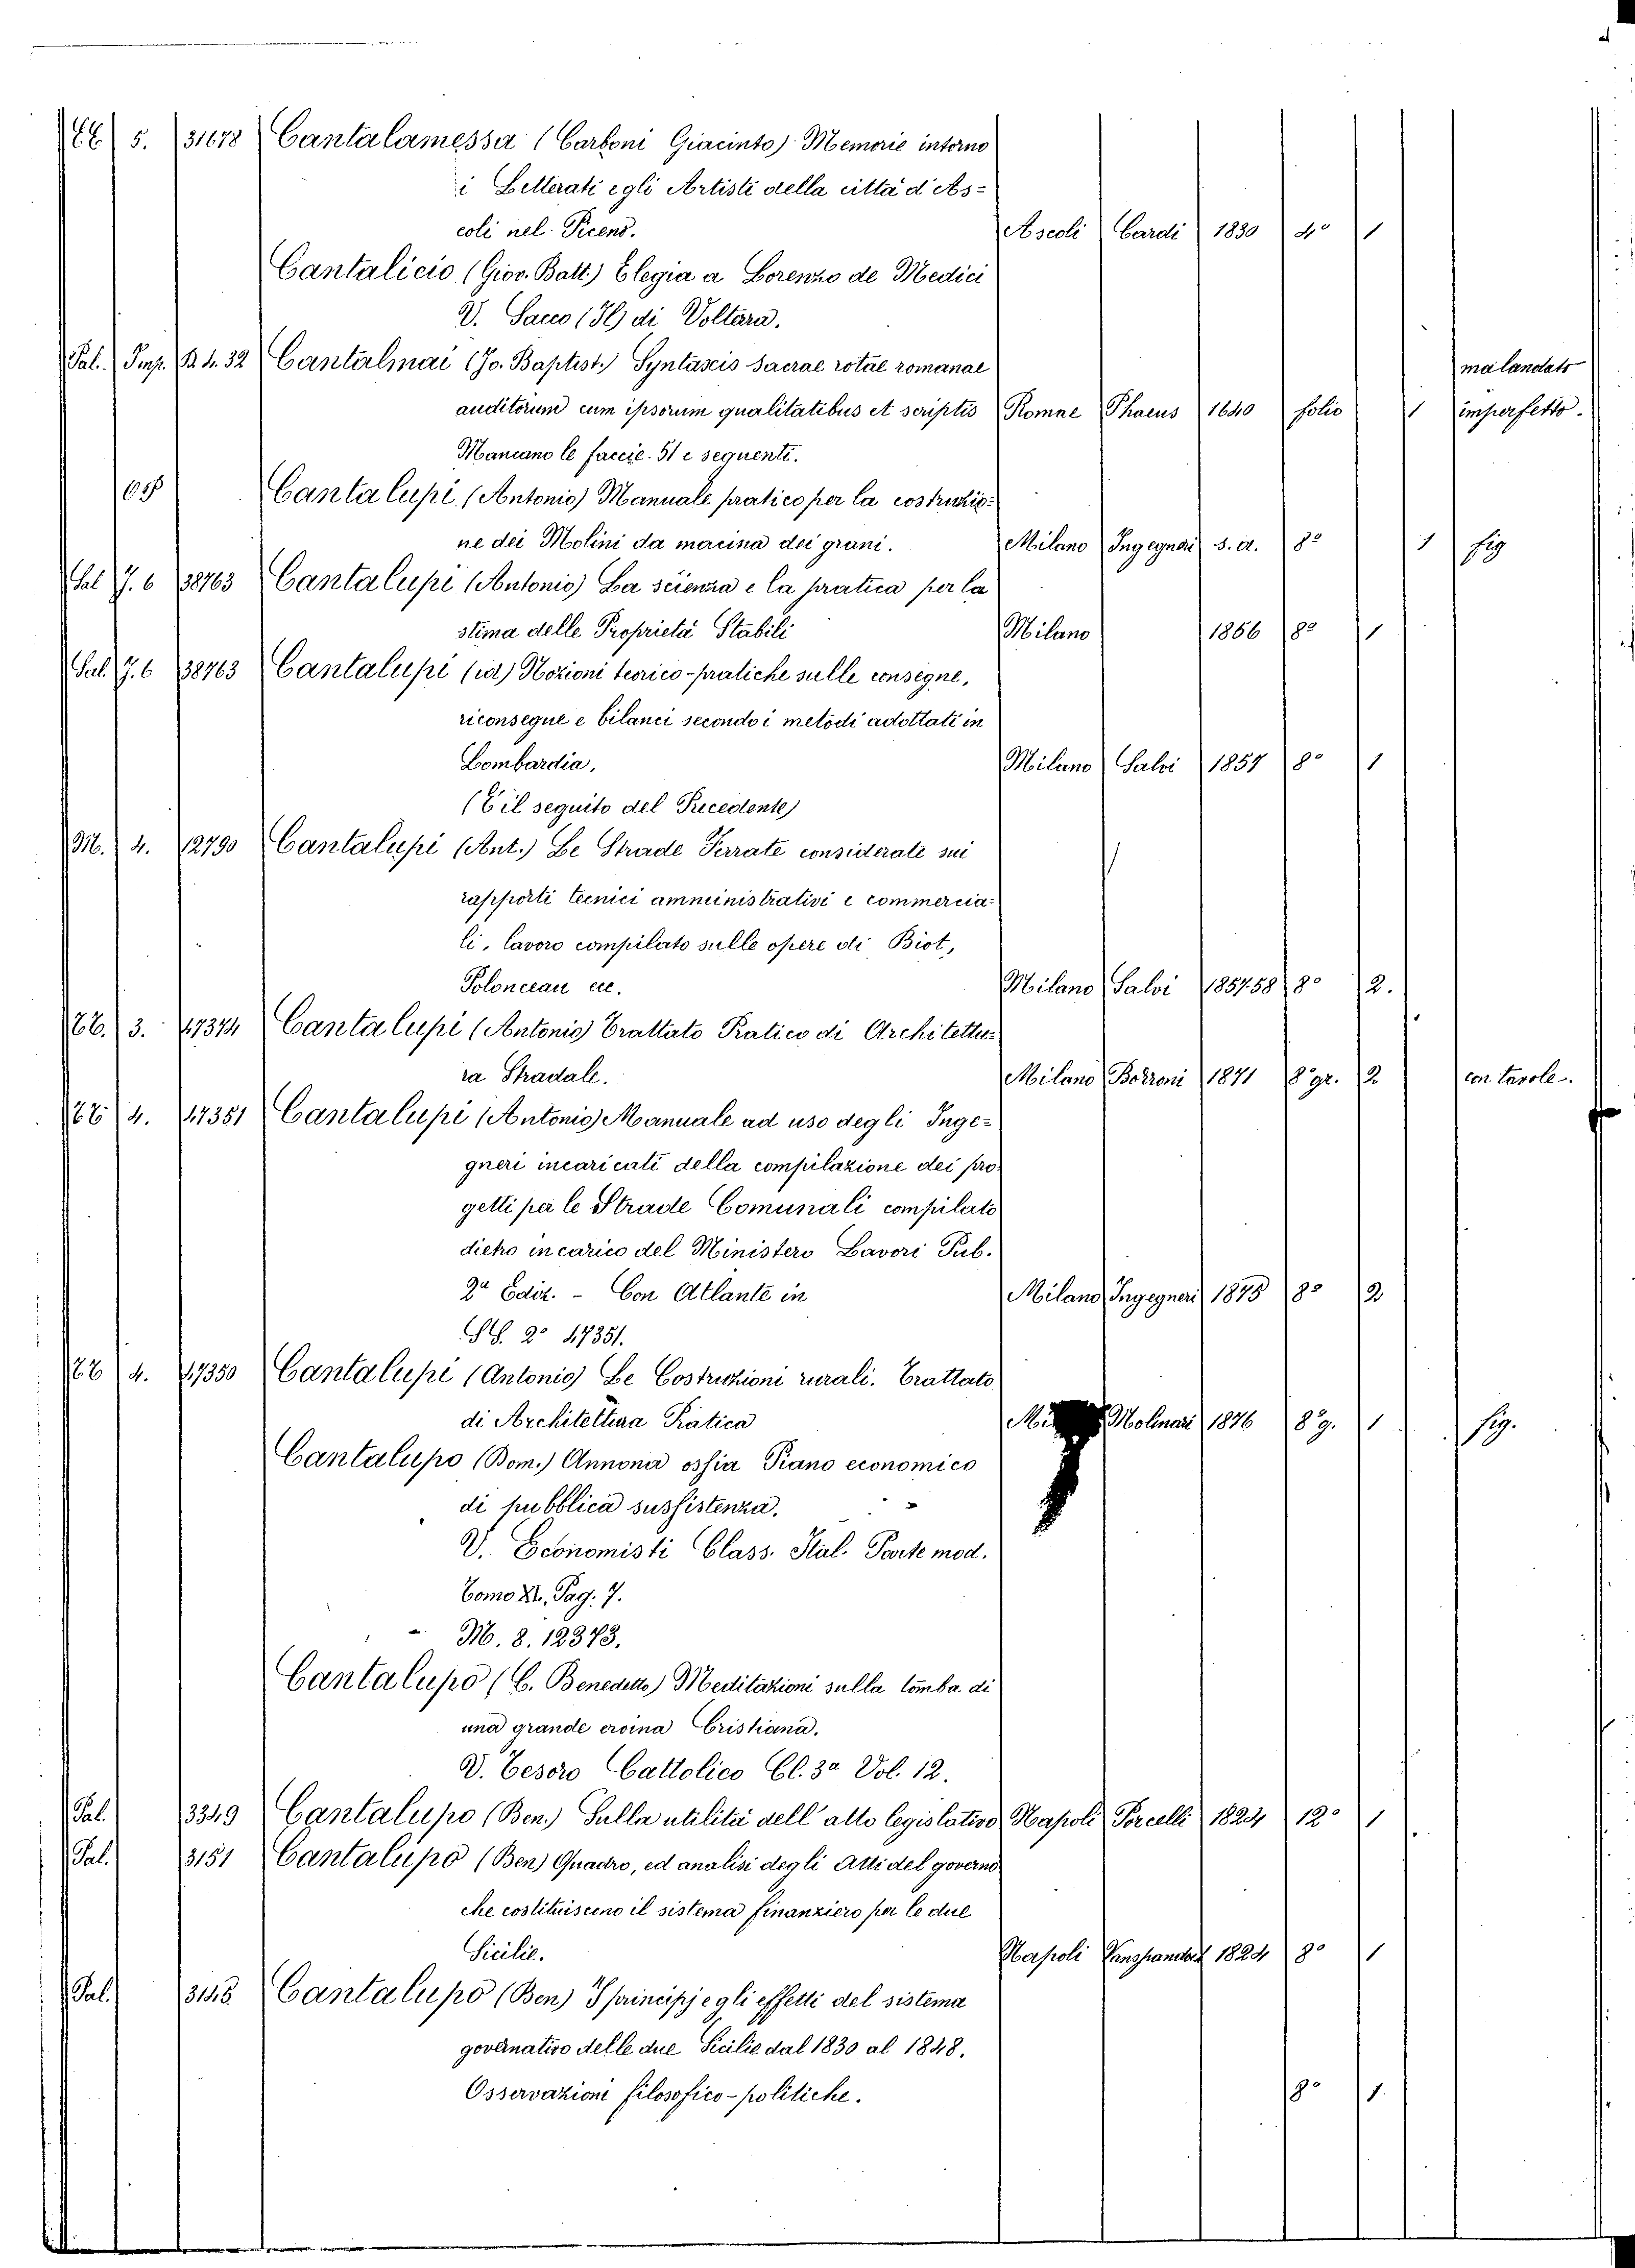 EE 5. 31678 Cantalamessa (Carboni Giacinto) Memorie intorno
i Letterati e gli Artisti della città d'As-
coli nel Piceno. Ascoli Cardi 1830 4° 1
Cantalicio (Giov. Batt.) Elegia a Lorenzo de Medici
V. Sacco (Il) di Volterra.
Pal. Imp. R. 4. 32 Cantalmai (Jo. Baptist.) Syntaxis sacrae rotae romanae malandato
auditorum cum ipsorum qualitatibus et scriptis Romae Phaeus 1640 folio 1 imperfetto.
Mancano le faccie. 51 e sequenti.
Cantalupi (Antonio) Manuale pratico per la costruzio-
ne dei Molini da macina dei grani. Milano Ingegneri s. a. 8° 1 fig
Sal J. 6 38763 Cantalupi (Antonio) La scienza e la pratica per la
stima delle Proprietà Stabili Milano 1856 8° 1
Sal. J. 6 38763 Cantalupi (id.) Nozioni teorico-pratiche sulle consegne,
riconsegne e bilanci secondo i metodi adottati in
Lombardia. Milano Salvi 1857 8° 1
(È il seguito del Precedente)
M. 4. 12790 Cantalupi (Ant.) Le Strade Ferrate considerate sui
rapporti tecnici amministrativi e commercia-
li, lavoro compilato sulle opere di Biot,
Polonceau ecc. Milano Salvi 1857.58 8° 2.
EE. 3. 47374 Cantalupi (Antonio) Trattato Pratico di Architettu-
ra Stradale. Milano Borroni 1871 8° gr. 2 con tavole.
EE 4. 47351 Cantalupi (Antonio) Manuale ad uso degli Inge-
gneri incaricati della compilazione dei pro-
getti per le Strade Comunali compilato
dietro incarico del Ministero Lavori Pub.
2a Ediz. - Con Atlante in Milano Ingegneri 1875 8° 2
SS. 2° 47351.
EE 4. 47350 Cantalupi (Antonio) Le Costruzioni rurali. Trattato
di Architettura Pratica Mi Molinari 1876 8° g. 1 fig.
Cantalupo (Dom.) Annona ossia Piano economico
di pubblica sussistenza.
V. Economisti Class. Ital. Parte mod.
Tomo XL, Pag. 7.
M. 8. 12373.
Cantalupo (C. Benedetto) Meditazioni sulla tomba di
una grande eroina Cristiana.
V. Tesoro Cattolico Cl. 3a Vol. 12.
Pal. 3349 Cantalupo (Ben.) Sulla utilità dell'atto legislativo Napoli Porcelli 1824 12° 1
Pal. 3151 Cantalupo (Ben) Quadro, ed analisi degli Atti del governo
che costituiscono il sistema finanziero per le due
Sicilie. Napoli 1824 8° 1
Pal. 3145 Cantalupo (Ben) I principj e gli effetti del sistema
governativo delle due Sicilie dal 1830 al 1848.
Osservazioni filosofico-politiche. 8° 1